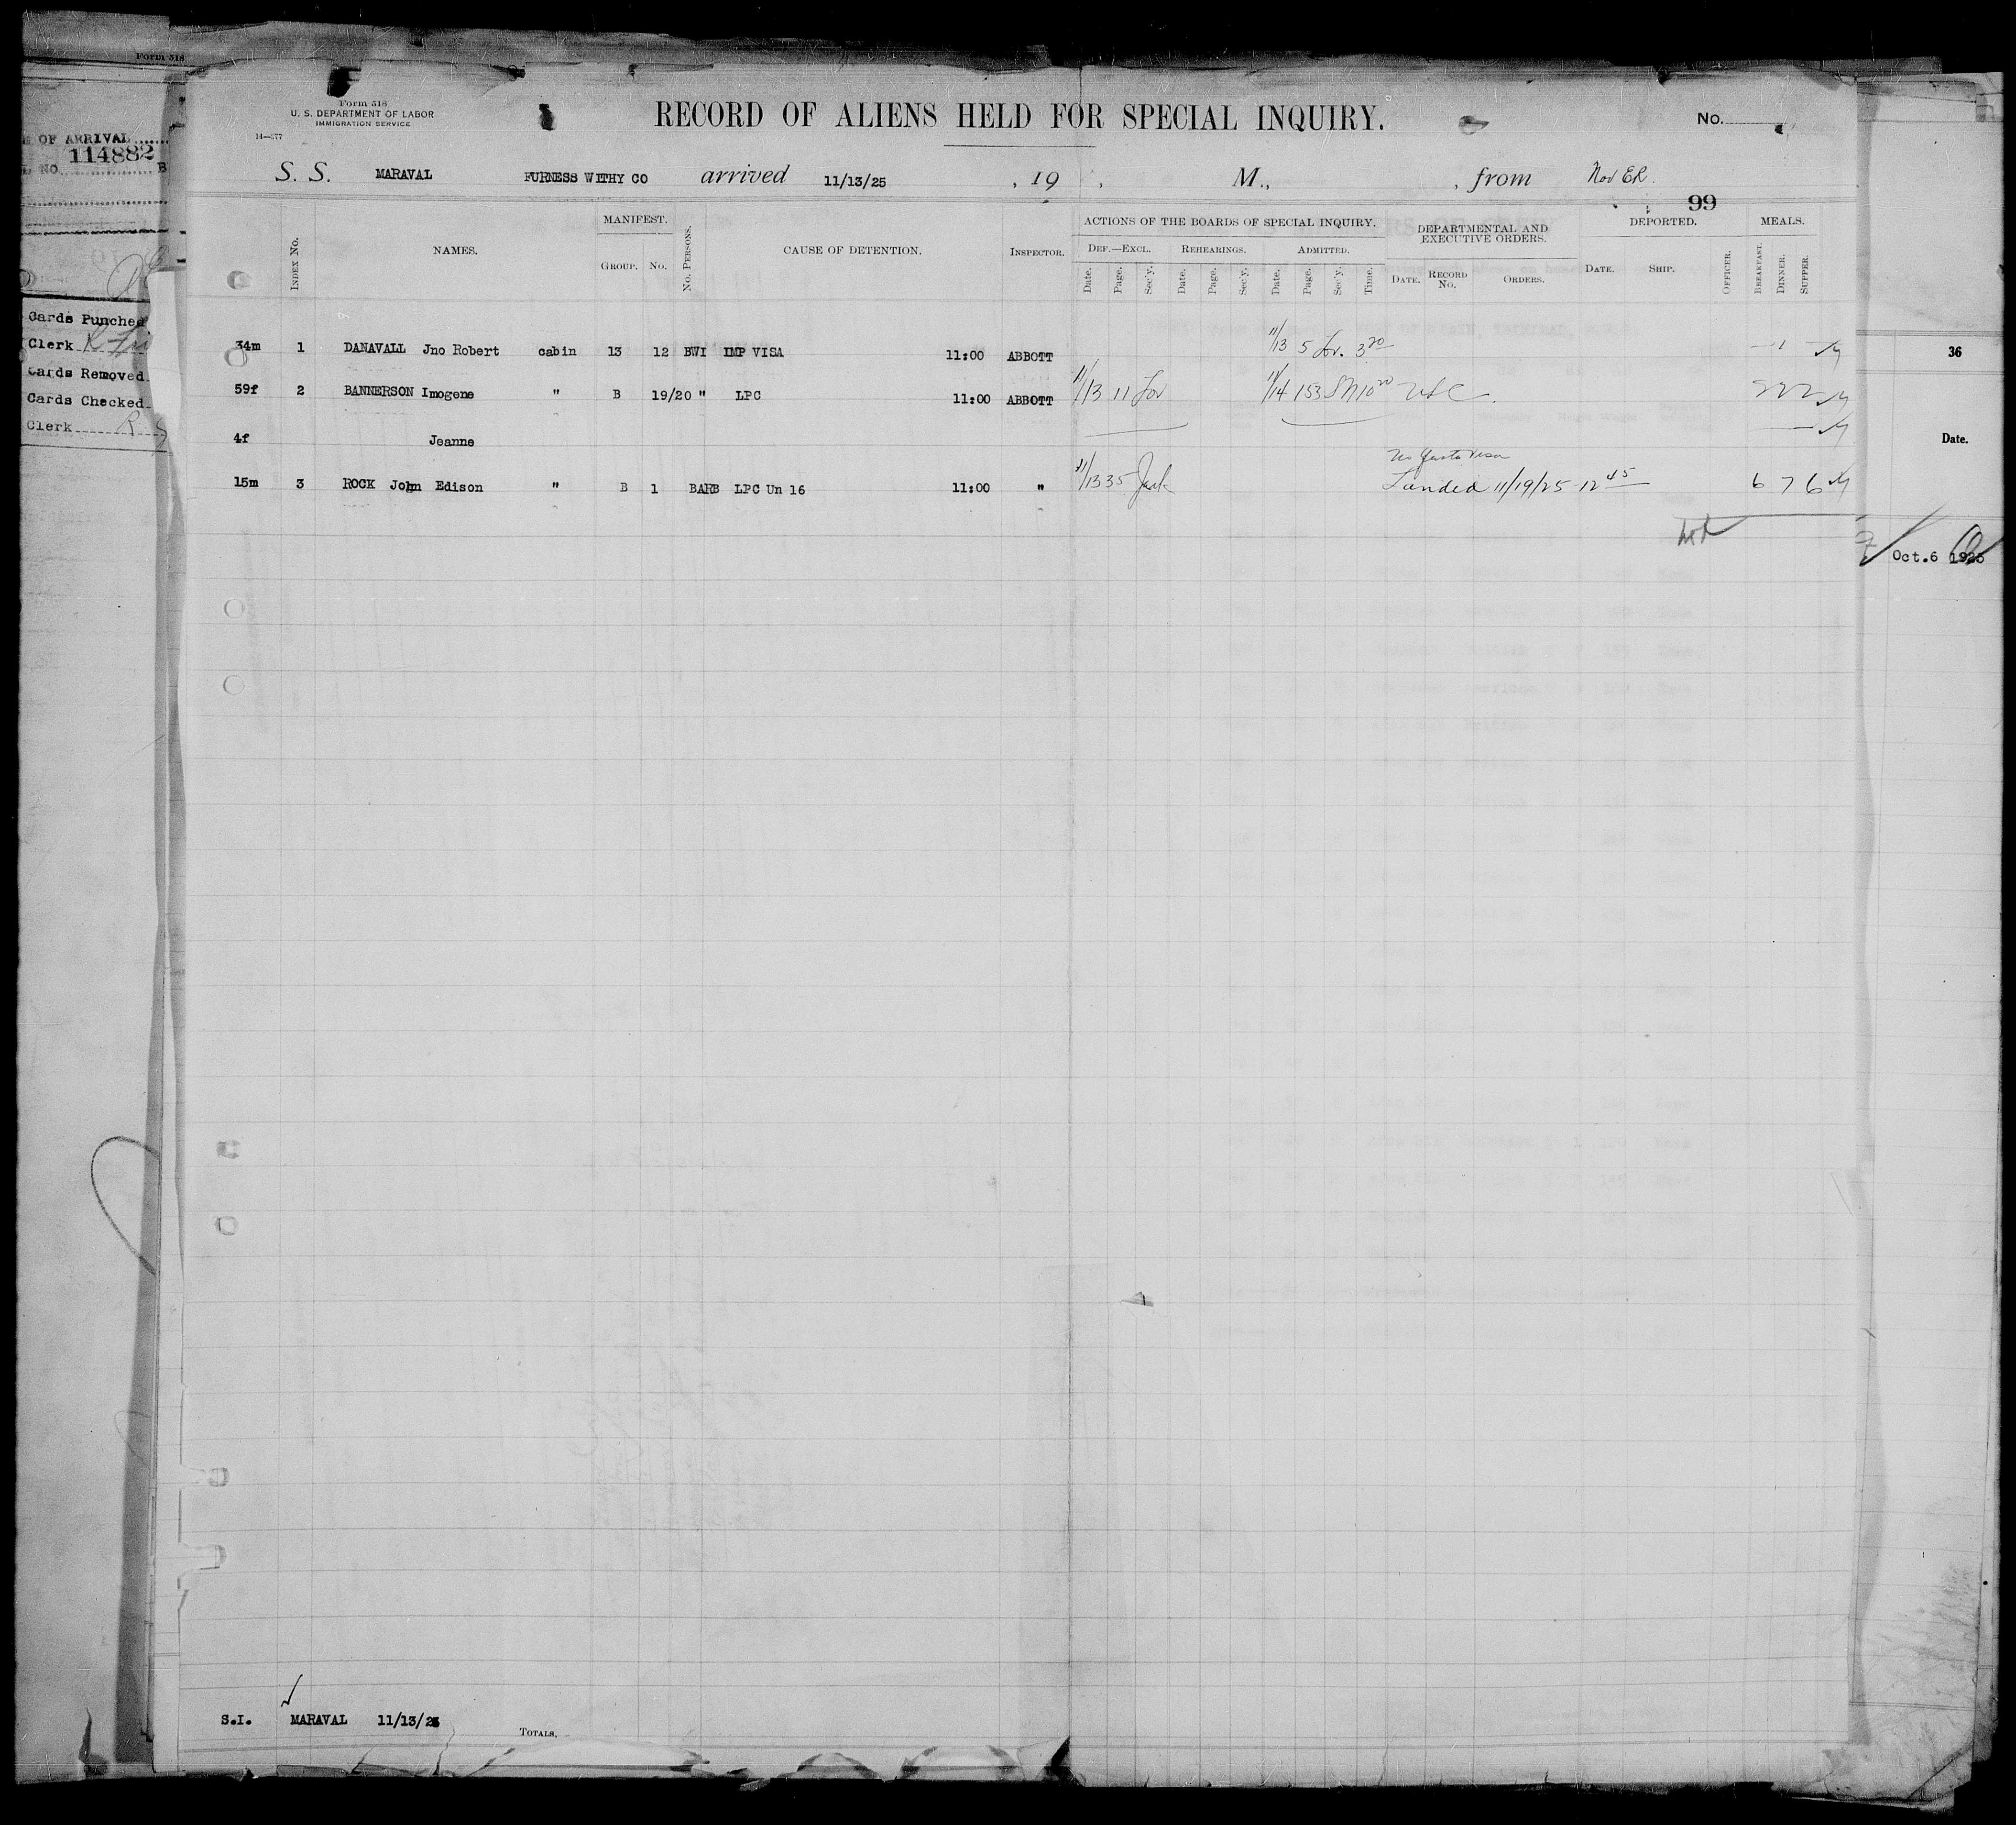 Form 518
E OF ARRIVAL
114882
L NO. B
Cards Punched
Clerk
Cards Removed
Cards Checked
Clerk
Form 518
U. S. DEPARTMENT OF LABOR
IMMIGRATION SERVICE
14—577
RECORD OF ALIENS HELD FOR SPECIAL INQUIRY.
No.
S. S. MARAVAL FURNESS WITHY CO arrived 11/13/25 , 19 , M., , from
99
INDEX No.
NAMES.
MANIFEST.
GROUP. No.
No. PERSONS.
CAUSE OF DETENTION.
INSPECTOR.
ACTIONS OF THE BOARDS OF SPECIAL INQUIRY.
DEF.—EXCL. REHEARINGS. ADMITTED.
Date. Page. Sec'y. Date. Page. Sec'y. Date. Page. Sec'y. Time.
DEPARTMENTAL AND
EXECUTIVE ORDERS.
DATE. RECORD No. ORDERS.
DEPORTED.
DATE. SHIP.
OFFICER.
MEALS.
BREAKFAST. DINNER. SUPPER.
34m 1 DANAVALL Jno Robert cabin 13 12 BWI IMP VISA 11:00 ABBOTT 11/13 5 3 20 1
59f 2 BANNERSON Imogene " B 19/20 " LPC 11:00 ABBOTT 11/13 11 11/14 153 SM 10 20 USC. 2 2 2
4f Jeanne
15m 3 ROCK John Edison " B 1 BARB LPC Un 16 11:00 " 11/13 35 Landed 11/19/25 - 12 45 6 7 6
S.I. MARAVAL 11/13/25
TOTALS.
36
Date.
Oct.6 1925